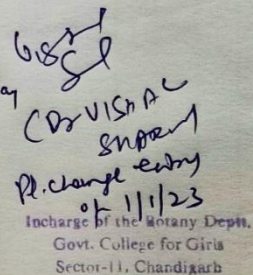 (Dr VISHAL
SHARMA)
Pl. change entry
of 1/1/23
Incharge of the Botany Deptt.
Govt. College for Girls
Sector-11, Chandigarh